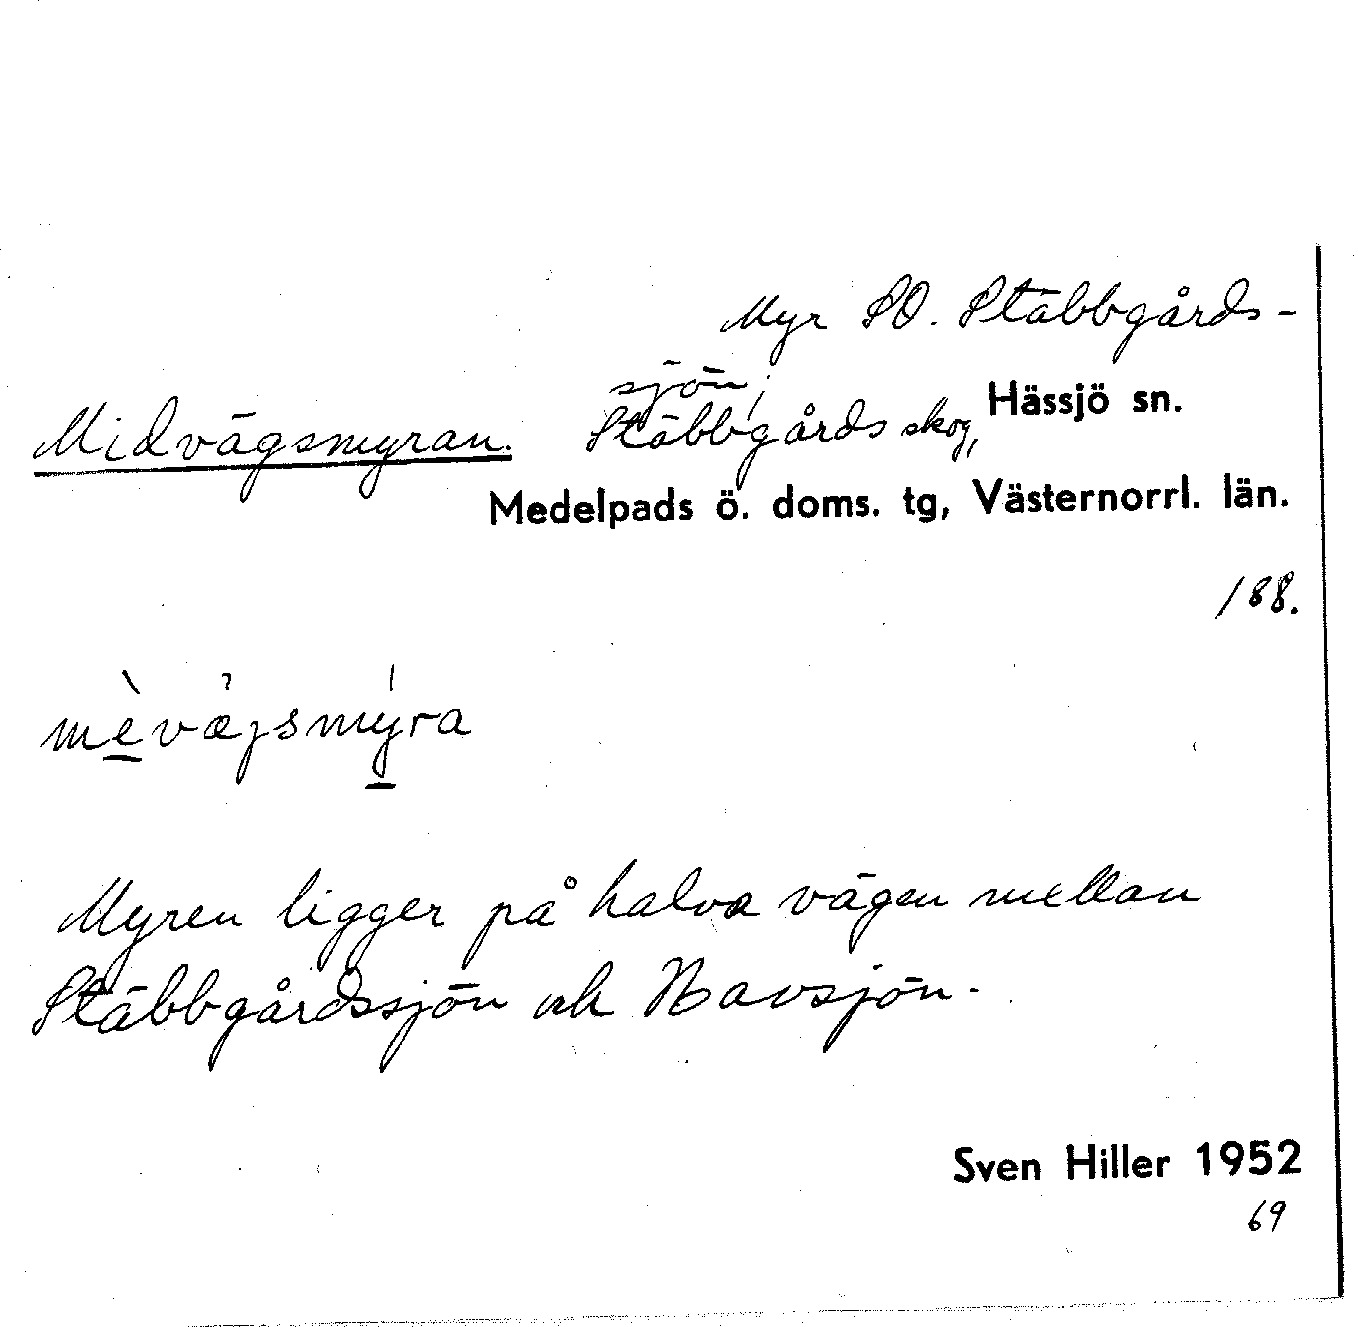 Myr SO. Stäbbgårds-
sjön,
Midvägsmyran. Stäbbgårds skog, Hässjö sn.
Medelpads ö. doms. tg, Västernorrl. län.
188.
mèvæjsmyra
Myren ligger på halva vägen mellan
Stäbbgårdssjön och Havsjön.
Sven Hiller 1952
69